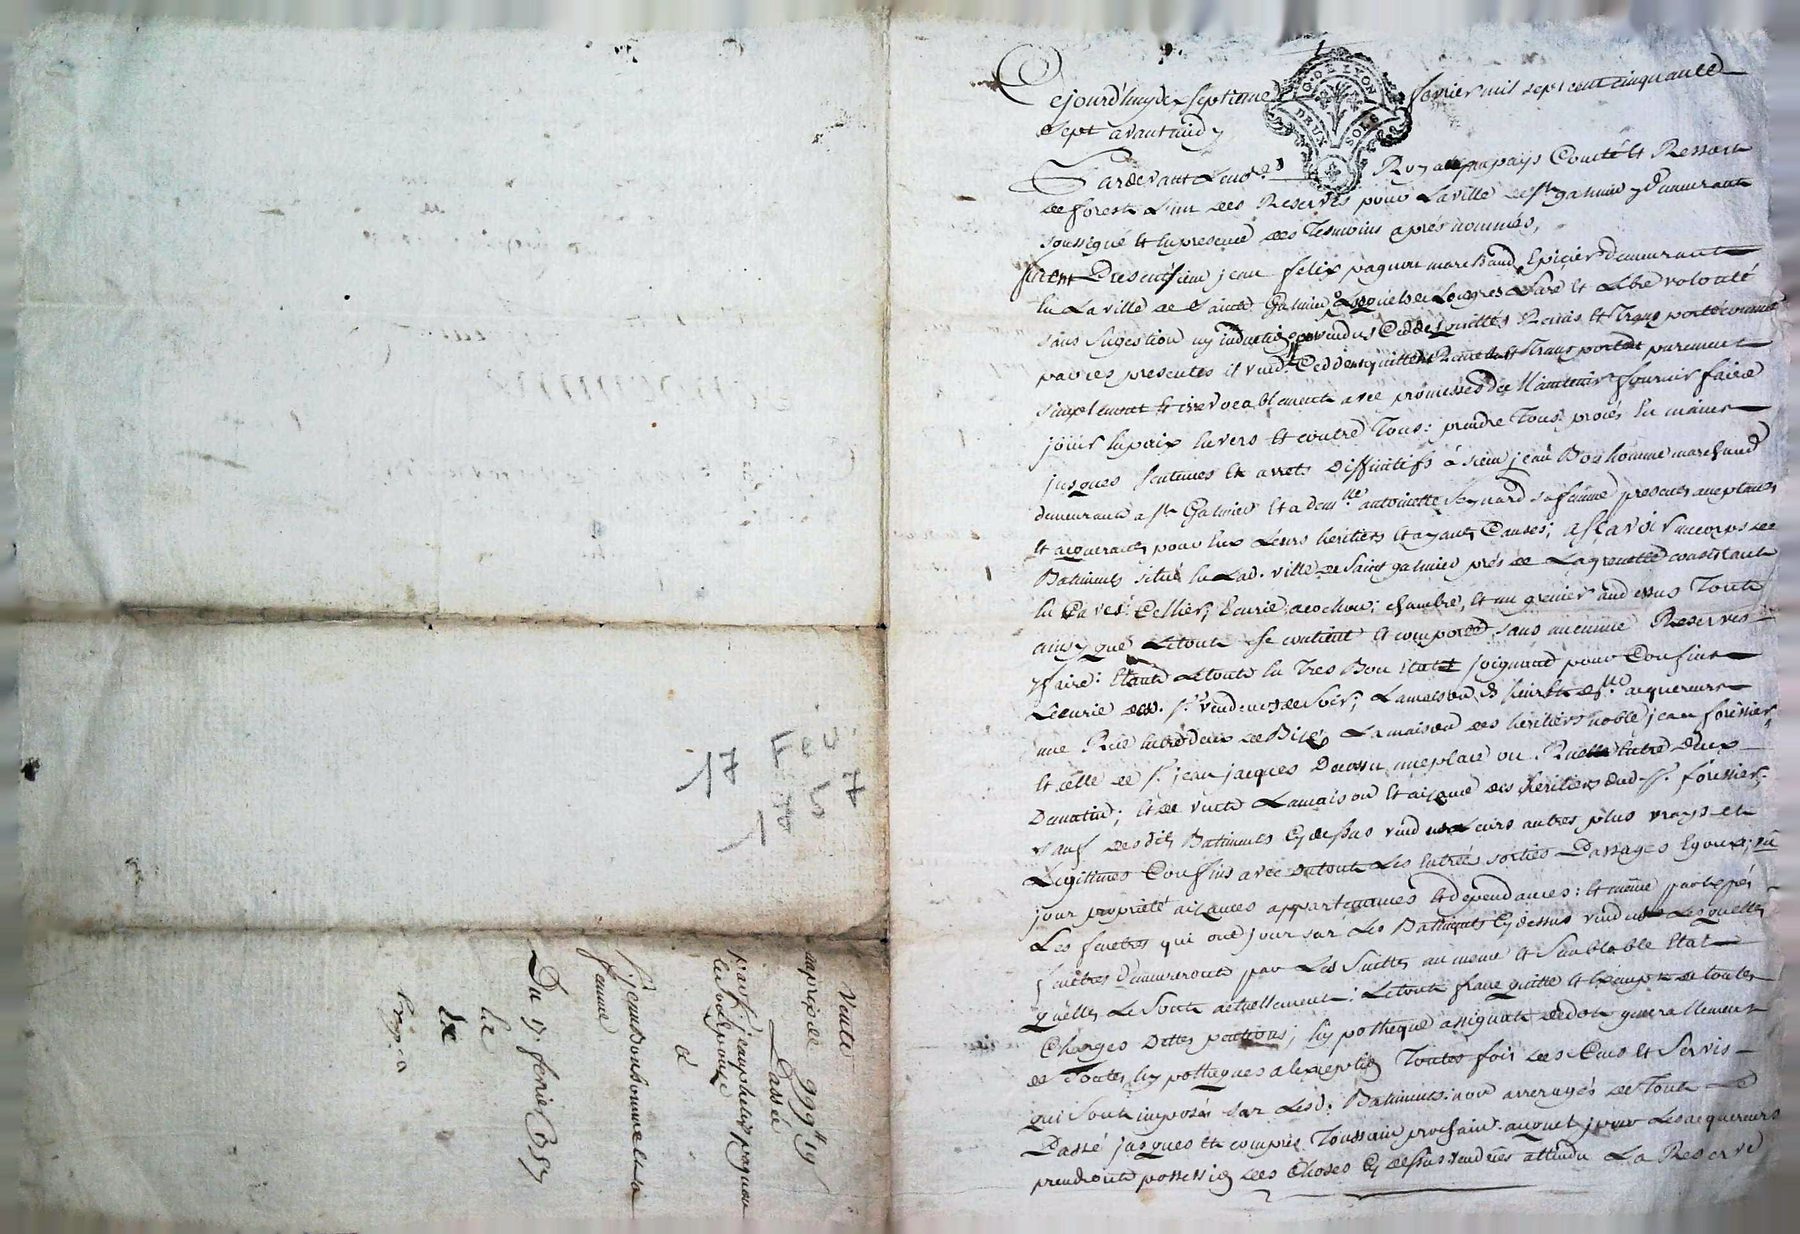 Cejourdhuy septieme fevrier mil sept cent cinquante
sept avant midy
G. DE LYON
DEUX SOLS
Pardevant Le no.re Royal au pays Comté et Ressort
de forest L'un des Reservés pour La ville de St galmier y demeurant
soussigné et en presence des Tesmoins aprés nommés,
furent Presents sieur jean felix pagnon marchand Epicier demeurant
En La ville de Saint Galmier Lesquels de Leurs gres Libre volonté
sans sugestion ny induction ont vendus Ceddes quittés Remis et Transporté comme
par ces presentes ils vendent Ceddent quittent Remettent et Transportent purement
simplement et irrevocablement avec promesses de Maintenir fournir faire
jouir En paix Envers et contre Tous: prendre Tous procés En mains
jusques sentences et arrets Diffinitifs à sieur jean Bonhomme marchand
demeurant a St Galmier Et a dem.lle antoinette Seynard sa femme presents acceptants
et acquerants pour Eux Leurs heritiers et ayants Causes; ascavoir un corps de
Batiments situé En Lad. ville de Saint galmier prés de La grenette consistant
En Caves: Cellier, Ecurie, chambre, et un grenier audessus Toute
ainsy que Letout se contient et compose sans aucunne Reserves
y faire: Etant Letout En Tres Bon joignant pour Confins
L'ecurie desd. Srs vendeurs de soir; La maison desd. acquereurs
une Rue Entredeux de Bise, La maison des heritiers noble jean forissier
et celle de Sr jean jacques une place ou Ruelle Entre deux
Dumatin; et de vent La maison et aisance des heritiers dud. Sr. forissier
sauf desdits Batiments Cydessus vendus Leurs autres plus vrays et
Legitimes Confins avec Dutout Les Entrées sorties Passages Egoux, vû
jour proprieté aisances appartenances et dependances: et même
Les fenetres qui ont jour sur Les Batiments Cydessus vendus Lesquelles
fenêtres demeureront par La Suitte au même et Semblable Etat
qu'elles Le Sont actuellement: Letout franc quitte et Exempt de toutes
Charges Dettes pentions; hypotheque assignats dedot generallement
de Toutes hypotheques al'exeption Toutes fois des Cens et Servis
qui Sont imposés sur Lesd. Batiments: non arreragés de Tout Le
Passé jusques Et compris Toussaint prochain auquel jour Les acquereurs
prendront possession des Choses Cydessus vendues attendu La Reserve
17 Fev.
57
Vente
au prix de 999 # 19 s
Passée
par S. jean phelix pagnon
et son Epouze
à
S. jean Bonhomme Et sa
femme
Du 7. fevrier 1757